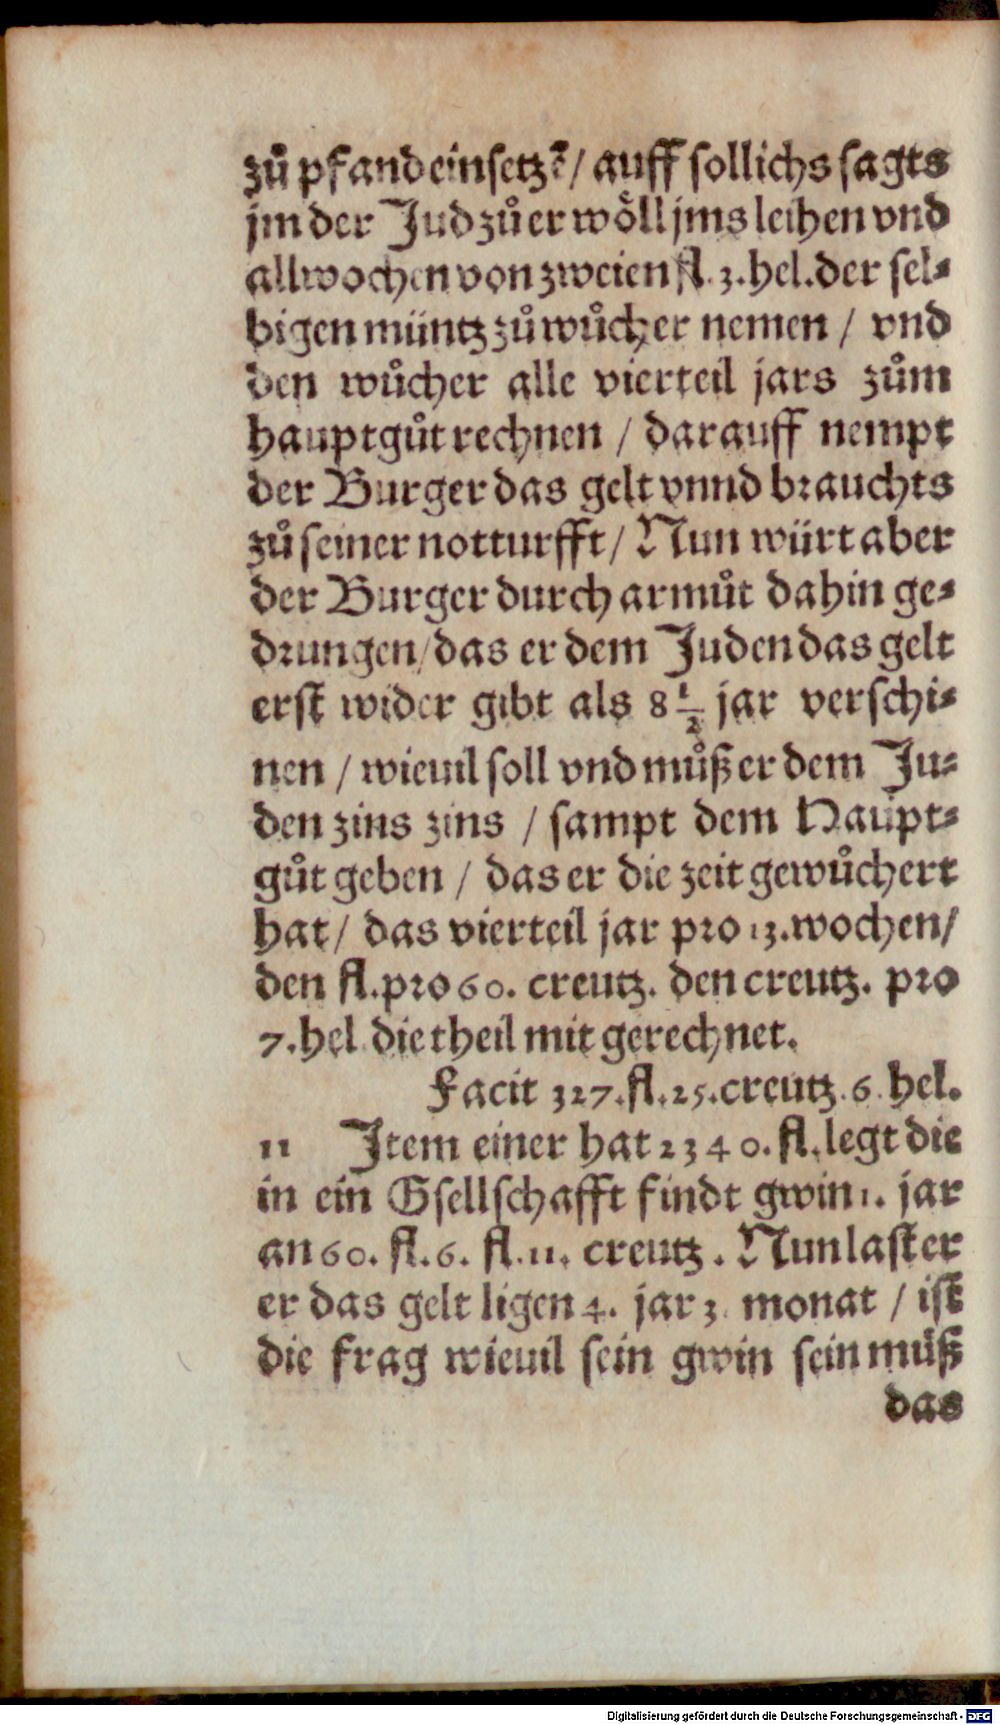 zů pfand einsetzē / auff sollichs sagts
jm der Jud zů er wöll jms leihen vnd
all wochen von zweien fl. 3. hel. der sel⸗
bigen müntz zů wůcher nemen / vnd
den wůcher alle vierteil jars zům
hauptgůt rechnen / darauff nempt
der Burger das gelt vnnd brauchts
zů seiner notturfft / Nun würt aber
der Burger durch armůt dahin ge⸗
drungen / das er dem Juden das gelt
erst wider gibt als 8 1/2 jar verschi⸗
nen / wieuil soll vnd můß er dem Ju⸗
den zins zins / sampt dem Haupt⸗
gůt geben / das er die zeit gewůchert
hat / das vierteil jar pro 13. wochen /
den fl. pro 60. creutz. den creutz. pro
7. hel die theil mit gerechnet.
Facit 327. fl. 25. creutz. 6. hel.
11 Item einer hat 2340. fl. legt die
in ein Gsellschafft findt gwin 1. jar
an 60. fl. 6. fl. 11. creutz. Nun last er
er das gelt ligen 4. jar 3. monat / ist
die frag wieuil sein gwin sein můß
das
Digitalisierung gefördert durch die Deutsche Forschungsgemeinschaft - DFG